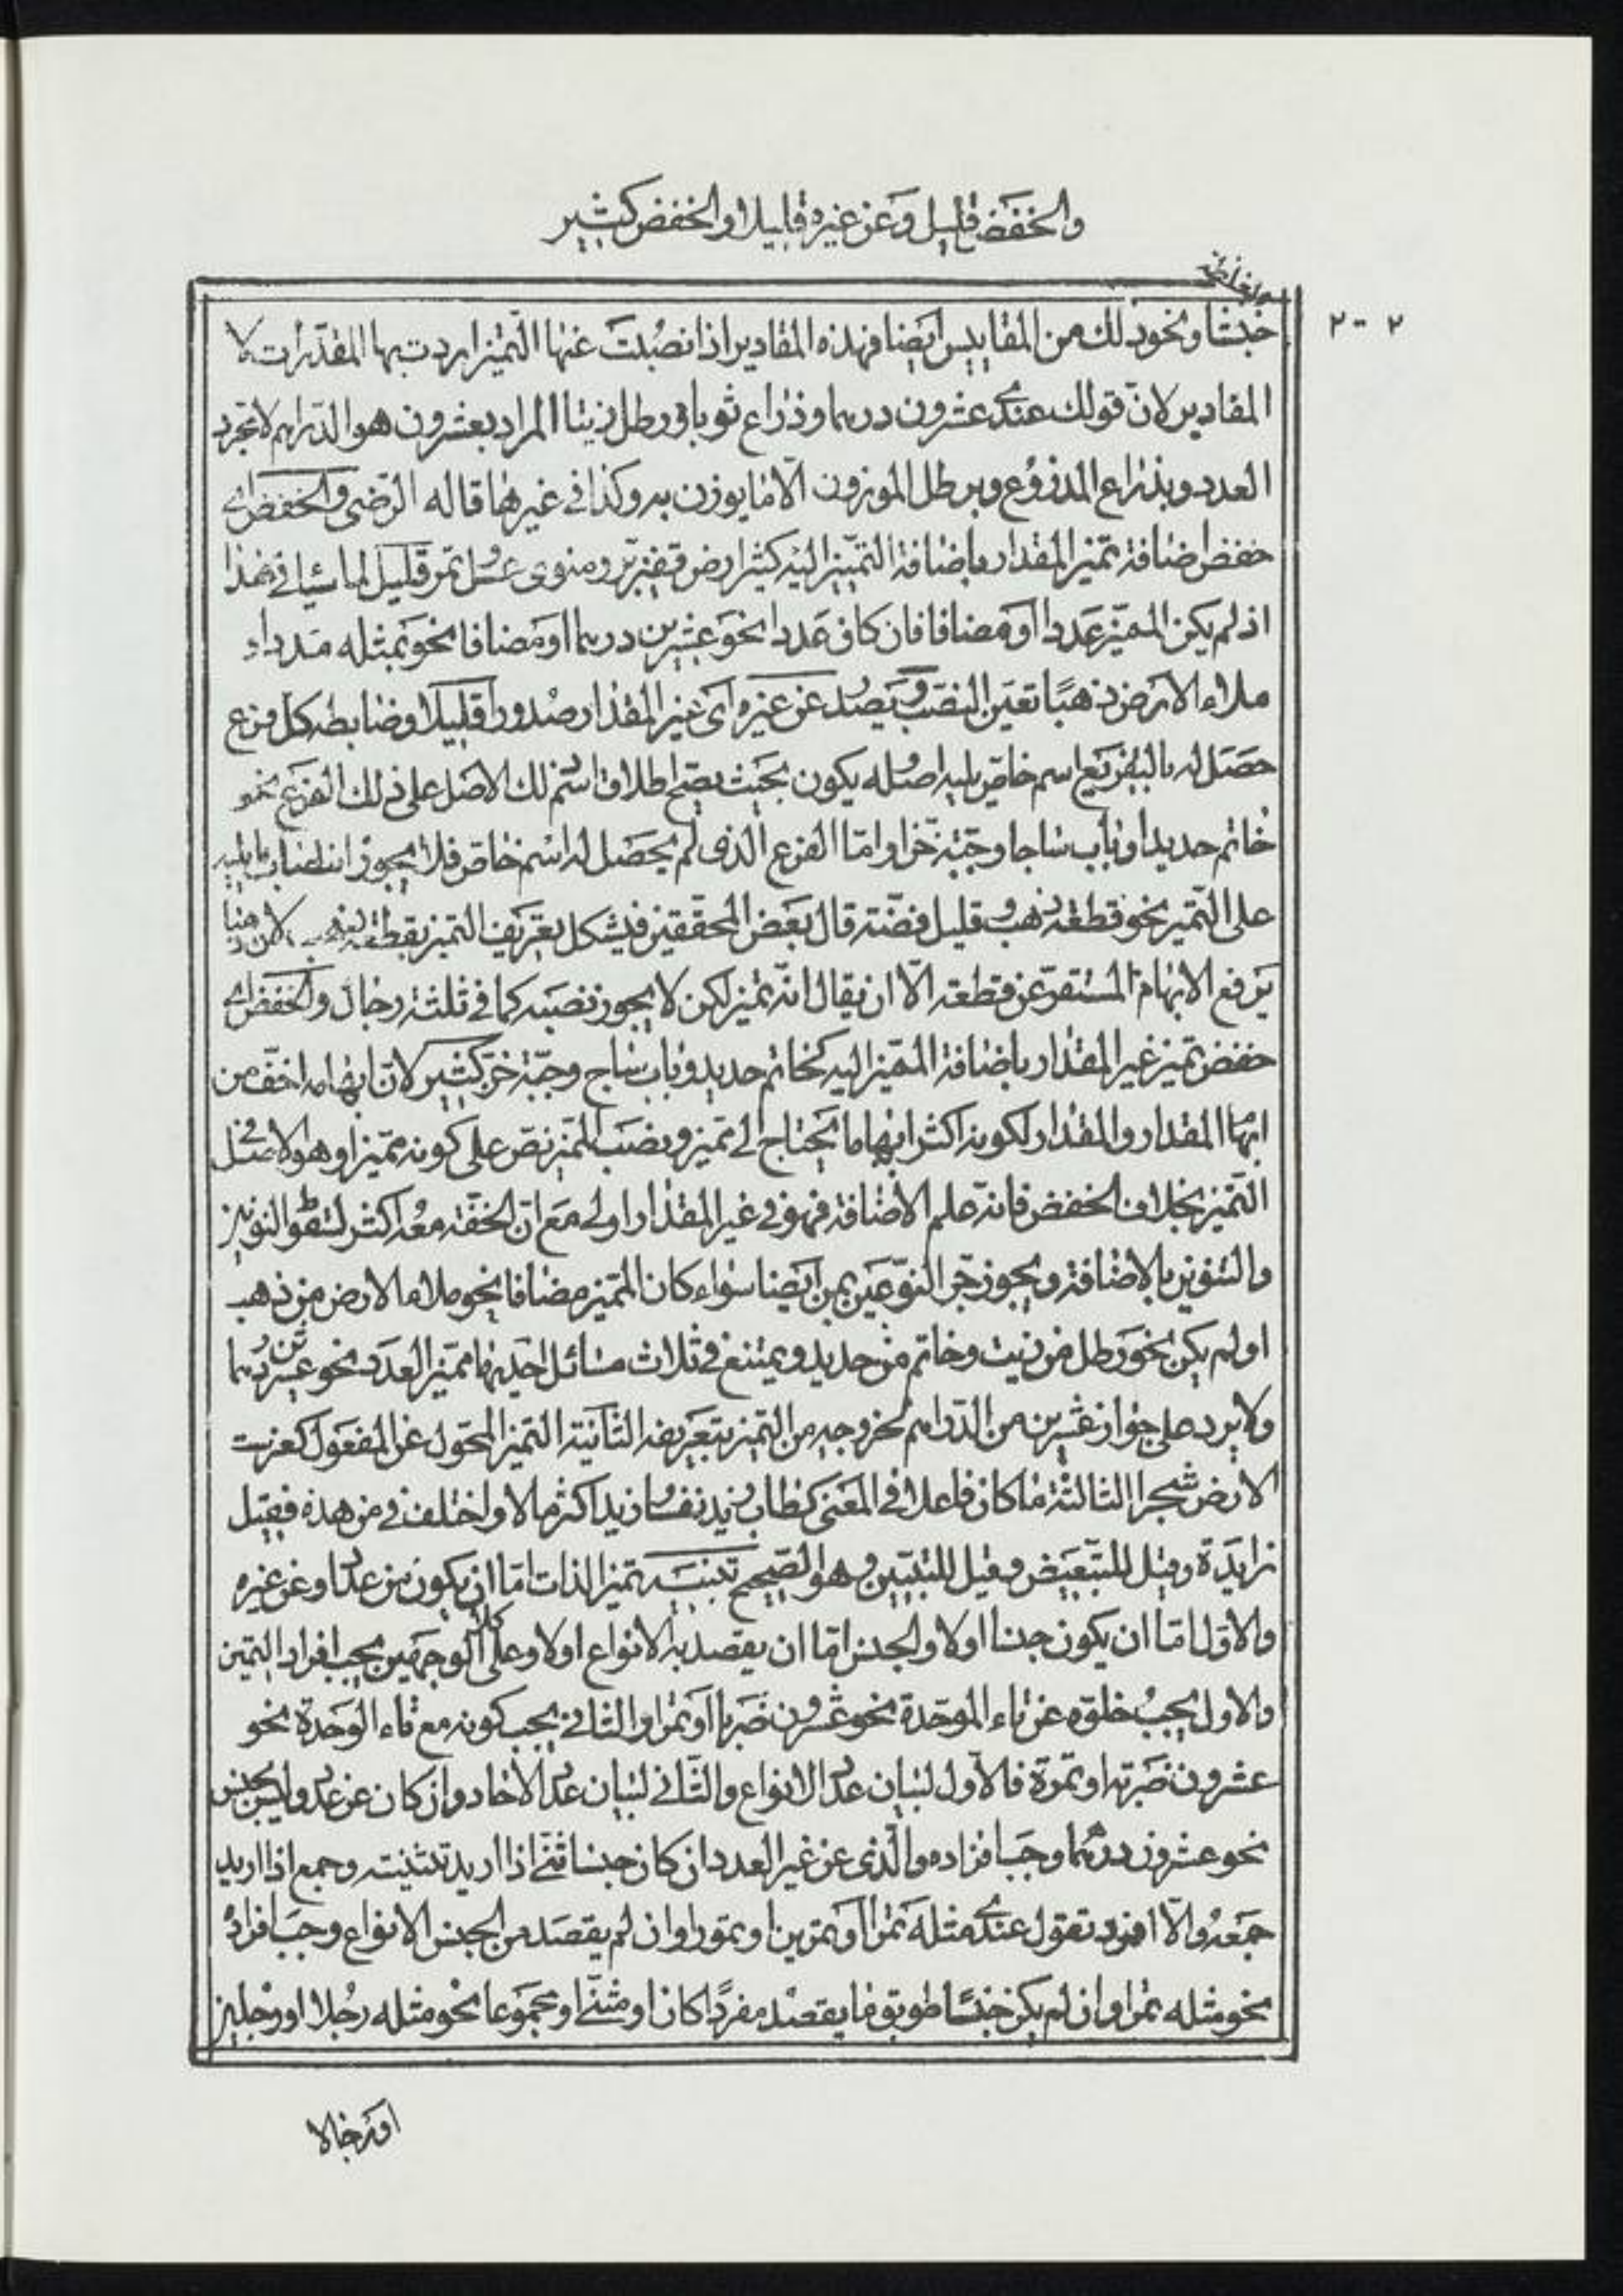 والخفض قليل وعن غيره قليلا والخفض كثير
٢٠٢
خبتنا ونحو ذلك من المقاييس ايضا فهذه المقادير اذا نصبت عنها التميز اردت بها المقدرات لا
المقادير لان قولك عندى عشرون درهما وذراع ثوبا ورطل زيتا المراد بعشرون هو الدراهم لا مجرد
العدد وبذراع المذروع وبرطل الموزون الا ما يوزن به وكذا في غيرها قاله الرضى والخفض اى
خفض اضافة تميز المقدار باضافة التمييز اليه كشبر ارض وقفيز بر ومنوى عسل وتمر قليل لما سيأتى هذا
اذ لم يكن المميز عددا او مضافا فان كان عددا نحو عشرين درهما او مضافا نحو بمثله مددا و
ملاء الارض ذهبا تعين النصب ويصد عن غيره اى غير المقدار صدورا قليلا وضابطه كل فرع
حصل له بالتفريع اسم خاص يليه اصله يكون بحيث يصح اطلاق اسم ذلك الاصل على ذلك الفرع نحو
خاتم حديدا وباب ساجا وجبة خزا واما الفرع الذى لم يحصل له اسم خاص فلا يجوز انتصاب ما يليه
على التميز نحو قطعة ذهب وقليل فضة قال بعض المحققين فيشكل بتعريف التميز بقطعة ذهب لان ذهبا
يرفع الابهام المستقر عن قطعة الا ان يقال انه تميز لكن لا يجوز نصبه كما في ثلثة رجال والخفض اى
خفض تميز غير المقدار باضافة المميز اليه كخاتم حديد وباب ساج وجبة خز كثير لان ابهامه اخف من
ابهام المقدار والمقدار لكونه اكثر ابهاما يحتاج الى تميز ونصب المميز نص على كونه مميزا وهو الاصل فى
التميز بخلاف الخفض فانه علم الاضافة فهو فى غير المقدار اولى مع ان الخفة معه اكثر لسقوط النونين
والتنوين بالاضافة ويجوز جر النوعين بمن ايضا سواء كان المميز مضافا نحو ملاء الارض من ذهب
او لم يكن نحو رطل من زيت وخاتم من حديد ويمتنع في ثلاث مسائل احديها مميز العدد نحو عشرين درهما
ولا يرد على جواز عشرين من الدراهم لخروجه من التميز بتعريفه الثانية التميز المحول عن المفعول كغرست
الارض شجرا الثالثة ما كان فاعلا في المعنى كطاب زيد نفسا وزيد اكثر مالا واختلف في من هذه فقيل
زايدة وقيل للتبعيض وقيل للتبيين وهو الصحيح تنبيه تميز الذات اما ان يكون عن عدد او عن غيره
والاول اما ان يكون جنسا اولا والجنس اما ان يقصد به الانواع اولا وعلى كلا الوجهين يجب افراد التميز
والاول يجب خلوه عن تاء الموحدة نحو عشرون ضربا او تمرا والثانى يجب كونه مع تاء الوحدة نحو
عشرون ضربة او تمرة فالاول لبيان عدد الانواع والثانى لبيان عدد الاحاد وان كان عن عدد وليس بجنس
نحو عشرون درهما وجب افراده والذى عن غير العدد ان كان جنسا ثنى اذا اريد تثنيته وجمع اذا اريد
جمعه والا افرد تقول عندى مثله تمرا او تمرين او تمورا وان لم يقصد من الجنس الانواع وجب افراده
نحو مثله تمرا وان لم يكن جنسا طوبق ما يقصد مفردا كان او مثنى او مجموعا نحو مثله رجلا او رجلين
او رجالا